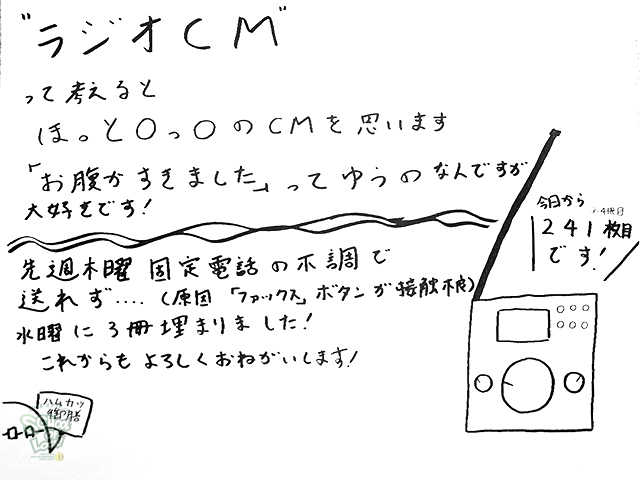 "ラジオCM"
って考えると
ほっと〇っ〇のCMを思います
「お腹がすきました」ってゆうのなんですが
大好きです!
今日から
241枚目
です!
先週木曜 固定電話の不調で
送れず‥‥(原因「ファックス」ボタンが接触不良)
水曜に3冊埋まりました!
これからもよろしくおねがいします!
ハムカツ
御膳